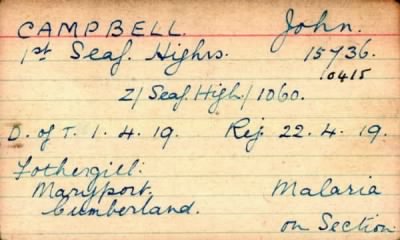 CAMPBELL. John.
1st Seaf. Highrs. 15736.
10415
Z/Seaf. High./1060.
D. of T. 1. 4. 19. Rej. 22. 4. 19.
Fothergill:
Maryport, Malaria
Cumberland.
on Section